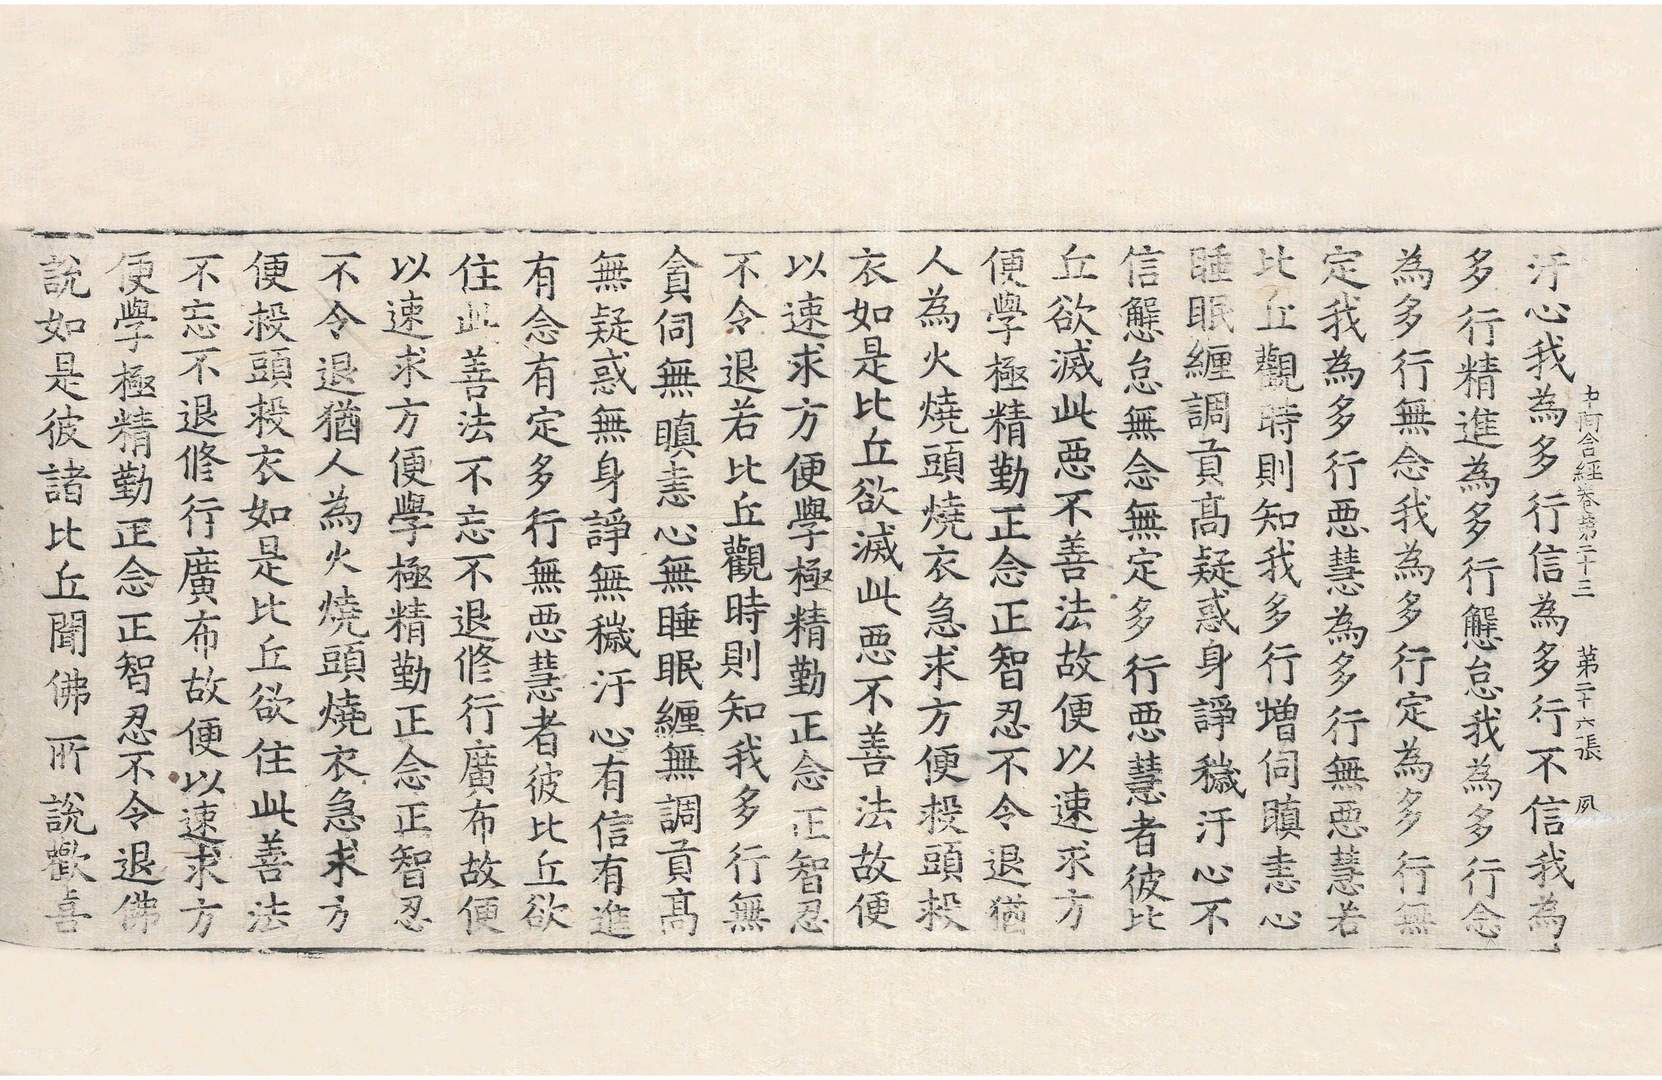 中阿含經卷第二十三　第二十六張　夙
汙心我為多行信為多行不信我為
多行精進為多行懈怠我為多行念
為多行無念我為多行定為多行無
定我為多行惡慧為多行無惡慧若
比丘觀時則知我多行增伺瞋恚心
睡眠纏調貢髙疑惑身諍穢汙心不
信懈怠無念無定多行惡慧者彼比
丘欲滅此惡不善法故便以速求方
便學極精勤正念正智忍不令退猶
人為火燒頭燒衣急求方便救頭救
衣如是比丘欲滅此惡不善法故便
以速求方便學極精勤正念正智忍
不令退若比丘觀時則知我多行無
貪伺無瞋恚心無睡眠纏無調貢髙
無疑惑無身諍無穢汙心有信有進
有念有定多行無惡慧者彼比丘欲
住此善法不忘不退修行廣布故便
以速求方便學極精勤正念正智忍
不令退猶人為火燒頭燒衣急求方
便救頭救衣如是比丘欲住此善法
不忘不退修行廣布故便以速求方
便學極精勤正念正智忍不令退佛
說如是彼諸比丘聞佛所說歡喜